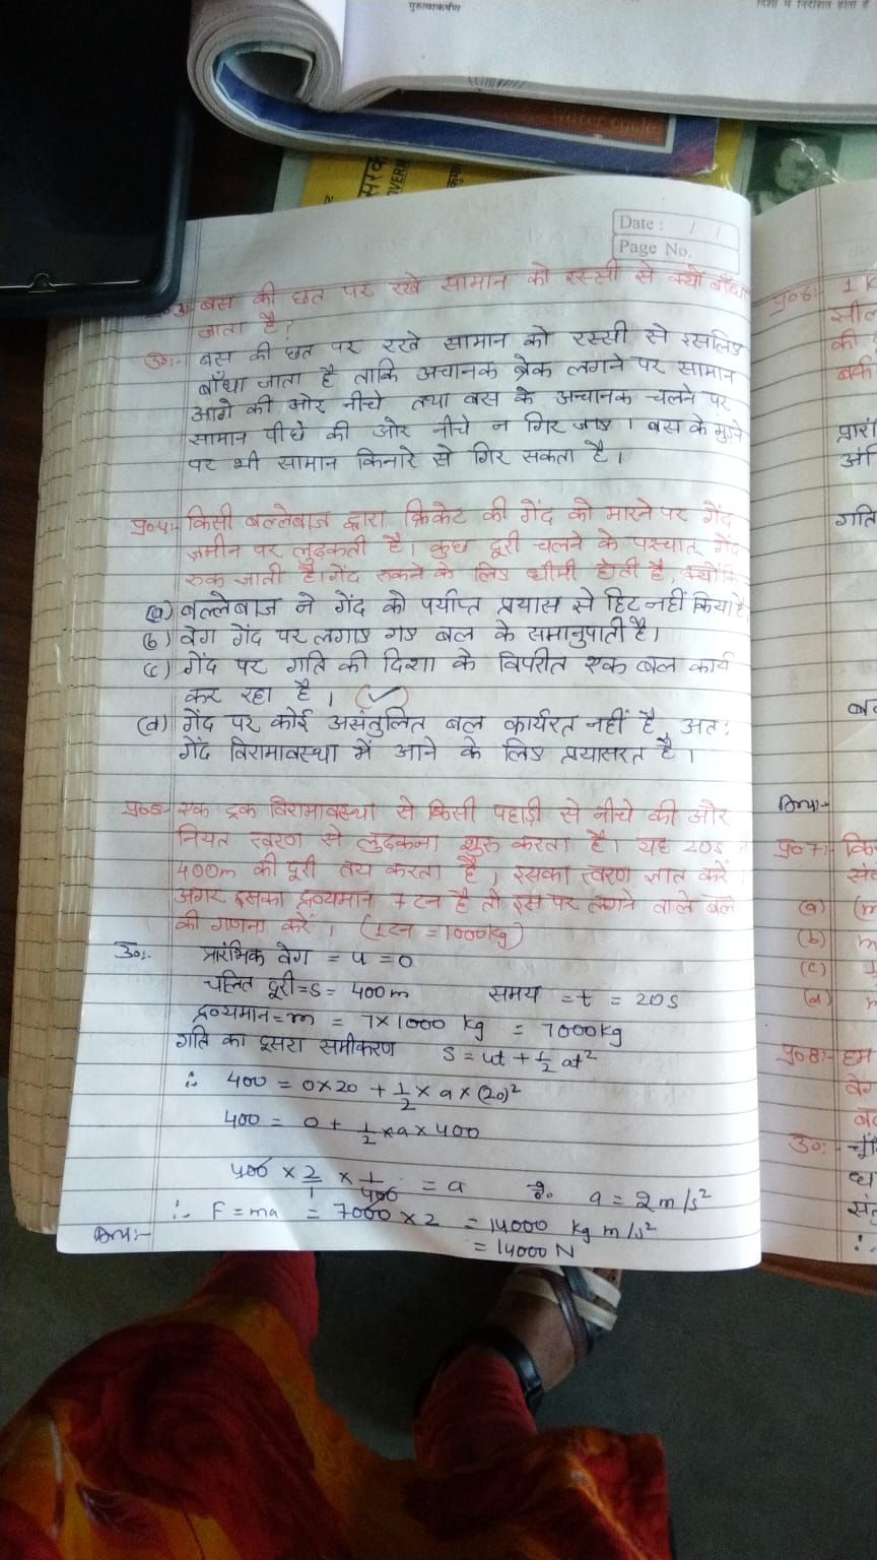 गुरुत्वाकर्षण
Date : / /
Page No.
बस की छत पर रखे सामान को रस्सी से क्यों बाँधा
जाता है?
उ०:- बस की छत पर रखे सामान को रस्सी से इसलिए
बाँधा जाता है ताकि अचानक ब्रेक लगने पर सामान
आगे की ओर नीचे तथा बस के अचानक चलने पर
सामान पीछे की ओर नीचे न गिर जाए। बस के मुड़ने
पर भी सामान किनारे से गिर सकता है।
प्र०4:- किसी बल्लेबाज द्वारा क्रिकेट की गेंद को मारने पर गेंद
ज़मीन पर लुढ़कती है। कुछ दूरी चलने के पश्चात् गेंद
रुक जाती है। गेंद रुकने के लिए धीमी होती है, क्योंकि
(a) बल्लेबाज ने गेंद को पर्याप्त प्रयास से हिट नहीं किया है
(b) वेग गेंद पर लगाए गए बल के समानुपाती है।
(c) गेंद पर गति की दिशा के विपरीत एक बल कार्य
कर रहा है। (✓)
(d) गेंद पर कोई असंतुलित बल कार्यरत नहीं है, अत:
गेंद विरामावस्था में आने के लिए प्रयासरत है।
प्र०5:- एक ट्रक विरामावस्था से किसी पहाड़ी से नीचे की ओर
नियत त्वरण से लुढ़कना शुरू करता है। यह 20s में
400m की दूरी तय करता है। इसका त्वरण ज्ञात करें।
अगर इसका द्रव्यमान 7 टन है तो इस पर लगने वाले बल
की गणना करें। (1टन = 1000kg)
उ०:- प्रारंभिक वेग = u = 0
चलित दूरी = s = 400m समय = t = 20s
द्रव्यमान = m = 7×1000 kg = 7000kg
गति का दूसरा समीकरण S = ut + 1/2 at²
∴ 400 = 0×20 + 1/2 × a × (20)²
400 = 0 + 1/2 × a × 400
400 × 2/1 × 1/400 = a a = 2m/s²
∴ F = ma = 7000 × 2 = 14000 kg m/s²
Ans:- = 14000 N
प्र०6:- 1
की
गति
Ans:-
प्र०7:-
(a) (m
(b) m
(c)
(d)
प्र०8:- हम
उ०:-